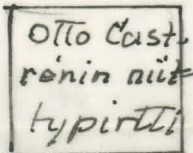 Otto Čast-
rénin niit-
typirtti